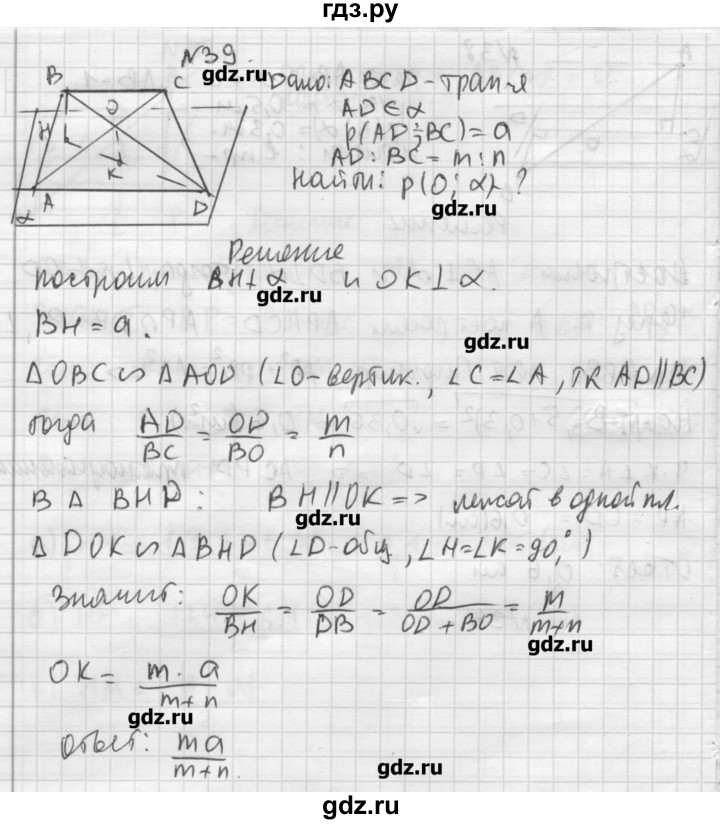 гдз.ру
N39.
gdz.ru
Дано: ABCD-трап-я
AD ∈ α
ρ(AD; BC) = a
AD : BC = m : n
Найти: ρ(O; α) - ?
gdz.ru
B C O H K A D α
Решение
построим BH ⊥ α и OK ⊥ α.
gdz.ru
BH = a.
gdz.ru
Δ OBC ∽ Δ AOD (∠O-вертик., ∠C = ∠A, тк AD || BC)
тогда AD/BC = OD/BO = m/n
В Δ BHD: BH || OK => лежат в одной пл.
gdz.ru
Δ DOK ∽ Δ BHD (∠D-общ, ∠H = ∠K = 90°)
Значит: OK/BH = OD/DB = OD/(OD + BO) = m/(m+n)
gdz.ru
OK = m · a/(m+n)
gdz.ru
ответ: ma/(m+n).
gdz.ru
gdz.ru